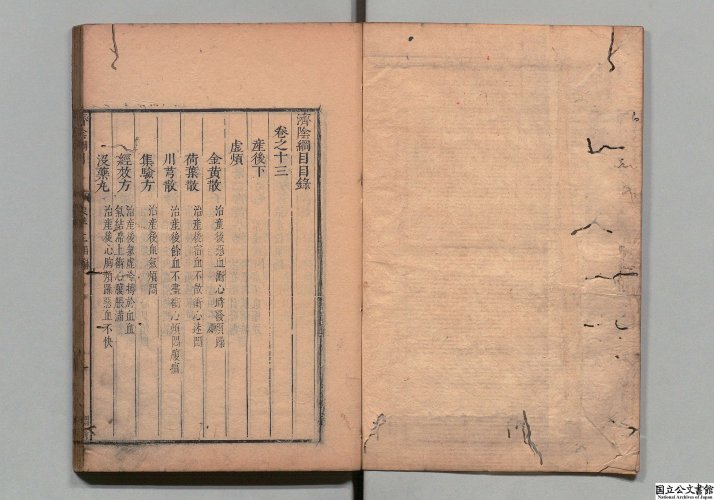 濟陰綱目目錄
卷之十三
産後下
虚煩
金黄散 治産後惡血衝心時發煩躁
荷葉散 治産後
川芎散 治産後餘血不盡衝心煩悶腹痛
集驗方 治産後血氣煩悶
經效方 治産後氣虚冷搏於血血
氣結滯上衝心腹脹滿
沒藥丸 治産後心胸煩躁惡血不快
国立公文書館
National Archives of Japan